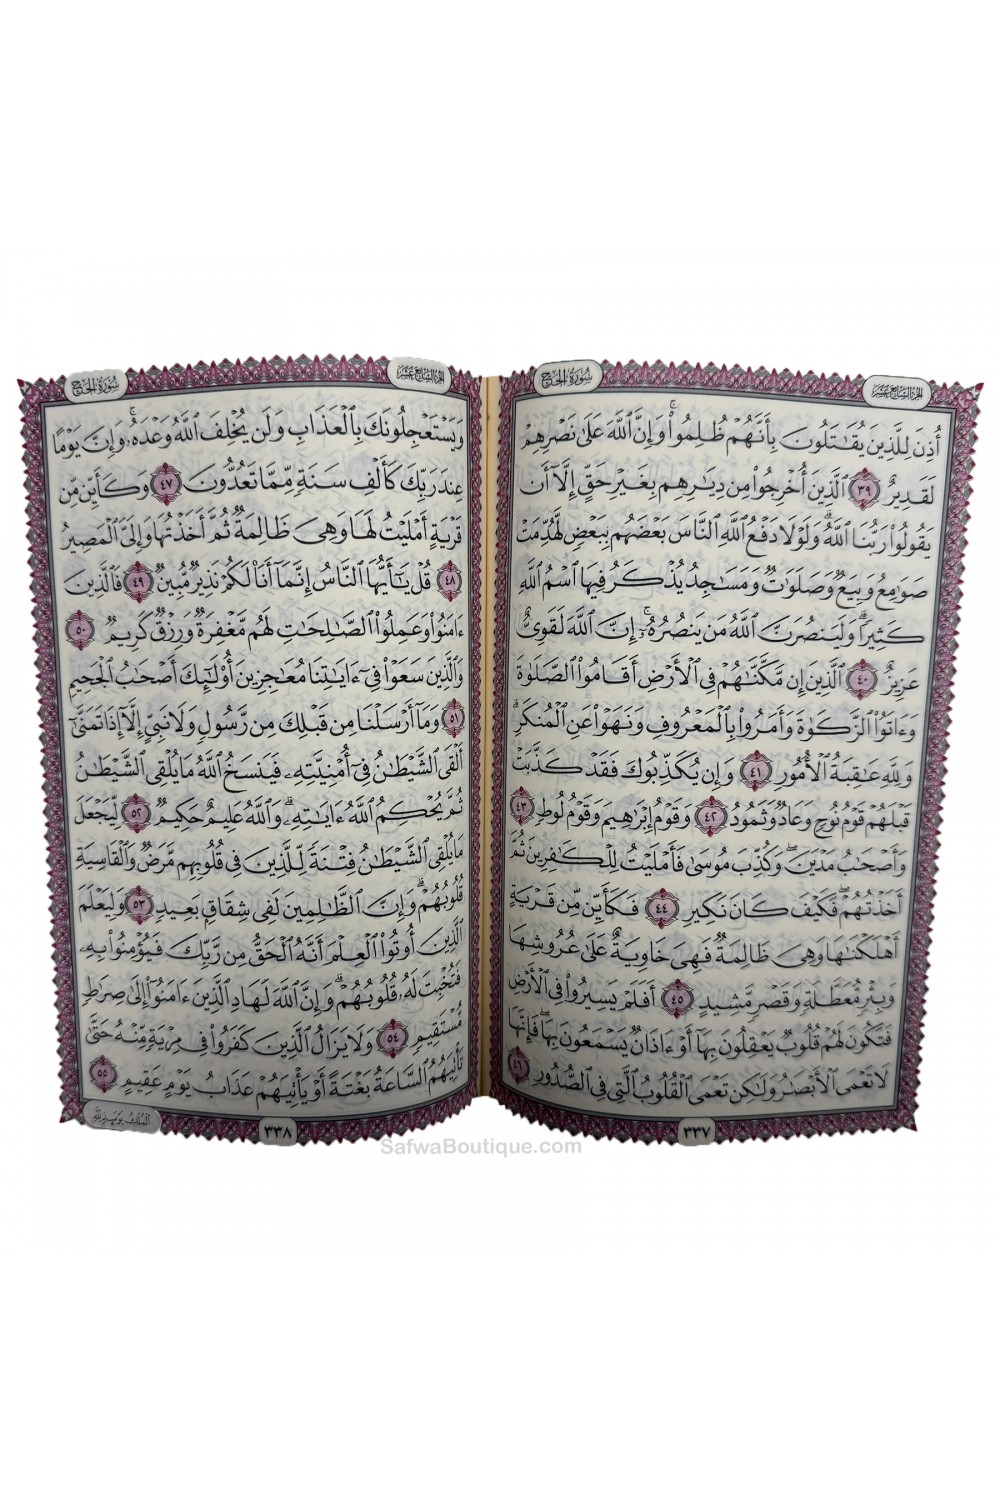 الجزء السابع عشر
سورة الحج
أُذِنَ لِلَّذِينَ يُقَٰتَلُونَ بِأَنَّهُمْ ظُلِمُوا۟ ۚ وَإِنَّ ٱللَّهَ عَلَىٰ نَصْرِهِمْ
لَقَدِيرٌ ٣٩ ٱلَّذِينَ أُخْرِجُوا۟ مِن دِيَٰرِهِم بِغَيْرِ حَقٍّ إِلَّآ أَن
يَقُولُوا۟ رَبُّنَا ٱللَّهُ ۗ وَلَوْلَا دَفْعُ ٱللَّهِ ٱلنَّاسَ بَعْضَهُم بِبَعْضٍ لَّهُدِّمَتْ
صَوَٰمِعُ وَبِيَعٌ وَصَلَوَٰتٌ وَمَسَٰجِدُ يُذْكَرُ فِيهَا ٱسْمُ ٱللَّهِ
كَثِيرًا ۗ وَلَيَنصُرَنَّ ٱللَّهُ مَن يَنصُرُهُۥٓ ۗ إِنَّ ٱللَّهَ لَقَوِىٌّ
عَزِيزٌ ٤٠ ٱلَّذِينَ إِن مَّكَّنَّٰهُمْ فِى ٱلْأَرْضِ أَقَامُوا۟ ٱلصَّلَوٰةَ
وَءَاتَوُا۟ ٱلزَّكَوٰةَ وَأَمَرُوا۟ بِٱلْمَعْرُوفِ وَنَهَوْا۟ عَنِ ٱلْمُنكَرِ ۗ
وَلِلَّهِ عَٰقِبَةُ ٱلْأُمُورِ ٤١ وَإِن يُكَذِّبُوكَ فَقَدْ كَذَّبَتْ
قَبْلَهُمْ قَوْمُ نُوحٍ وَعَادٌ وَثَمُودُ ٤٢ وَقَوْمُ إِبْرَٰهِيمَ وَقَوْمُ لُوطٍ ٤٣
وَأَصْحَٰبُ مَدْيَنَ ۖ وَكُذِّبَ مُوسَىٰ فَأَمْلَيْتُ لِلْكَٰفِرِينَ ثُمَّ
أَخَذْتُهُمْ ۖ فَكَيْفَ كَانَ نَكِيرِ ٤٤ فَكَأَيِّن مِّن قَرْيَةٍ
أَهْلَكْنَٰهَا وَهِىَ ظَالِمَةٌ فَهِىَ خَاوِيَةٌ عَلَىٰ عُرُوشِهَا
وَبِئْرٍ مُّعَطَّلَةٍ وَقَصْرٍ مَّشِيدٍ ٤٥ أَفَلَمْ يَسِيرُوا۟ فِى ٱلْأَرْضِ
فَتَكُونَ لَهُمْ قُلُوبٌ يَعْقِلُونَ بِهَآ أَوْ ءَاذَانٌ يَسْمَعُونَ بِهَا ۖ فَإِنَّهَا
لَا تَعْمَى ٱلْأَبْصَٰرُ وَلَٰكِن تَعْمَى ٱلْقُلُوبُ ٱلَّتِى فِى ٱلصُّدُورِ ٤٦
٣٣٧
الجزء السابع عشر
سورة الحج
وَيَسْتَعْجِلُونَكَ بِٱلْعَذَابِ وَلَن يُخْلِفَ ٱللَّهُ وَعْدَهُۥ ۚ وَإِنَّ يَوْمًا
عِندَ رَبِّكَ كَأَلْفِ سَنَةٍ مِّمَّا تَعُدُّونَ ٤٧ وَكَأَيِّن مِّن
قَرْيَةٍ أَمْلَيْتُ لَهَا وَهِىَ ظَالِمَةٌ ثُمَّ أَخَذْتُهَا وَإِلَىَّ ٱلْمَصِيرُ
٤٨ قُلْ يَٰٓأَيُّهَا ٱلنَّاسُ إِنَّمَآ أَنَا۠ لَكُمْ نَذِيرٌ مُّبِينٌ ٤٩ فَٱلَّذِينَ
ءَامَنُوا۟ وَعَمِلُوا۟ ٱلصَّٰلِحَٰتِ لَهُم مَّغْفِرَةٌ وَرِزْقٌ كَرِيمٌ ٥٠
وَٱلَّذِينَ سَعَوْا۟ فِىٓ ءَايَٰتِنَا مُعَٰجِزِينَ أُو۟لَٰٓئِكَ أَصْحَٰبُ ٱلْجَحِيمِ
٥١ وَمَآ أَرْسَلْنَا مِن قَبْلِكَ مِن رَّسُولٍ وَلَا نَبِىٍّ إِلَّآ إِذَا تَمَنَّىٰٓ
أَلْقَى ٱلشَّيْطَٰنُ فِىٓ أُمْنِيَّتِهِۦ فَيَنسَخُ ٱللَّهُ مَا يُلْقِى ٱلشَّيْطَٰنُ
ثُمَّ يُحْكِمُ ٱللَّهُ ءَايَٰتِهِۦ ۗ وَٱللَّهُ عَلِيمٌ حَكِيمٌ ٥٢ لِّيَجْعَلَ
مَا يُلْقِى ٱلشَّيْطَٰنُ فِتْنَةً لِّلَّذِينَ فِى قُلُوبِهِم مَّرَضٌ وَٱلْقَاسِيَةِ
قُلُوبُهُمْ ۗ وَإِنَّ ٱلظَّٰلِمِينَ لَفِى شِقَاقٍۭ بَعِيدٍ ٥٣ وَلِيَعْلَمَ
ٱلَّذِينَ أُوتُوا۟ ٱلْعِلْمَ أَنَّهُ ٱلْحَقُّ مِن رَّبِّكَ فَيُؤْمِنُوا۟ بِهِۦ
فَتُخْبِتَ لَهُۥ قُلُوبُهُمْ ۗ وَإِنَّ ٱللَّهَ لَهَادِ ٱلَّذِينَ ءَامَنُوٓا۟ إِلَىٰ صِرَٰطٍ
مُّسْتَقِيمٍ ٥٤ وَلَا يَزَالُ ٱلَّذِينَ كَفَرُوا۟ فِى مِرْيَةٍ مِّنْهُ حَتَّىٰ
تَأْتِيَهُمُ ٱلسَّاعَةُ بَغْتَةً أَوْ يَأْتِيَهُمْ عَذَابُ يَوْمٍ عَقِيمٍ ٥٥
ٱلْمُلْكُ يَوْمَئِذٍ لِّلَّهِ
٣٣٨
SafwaBoutique.com